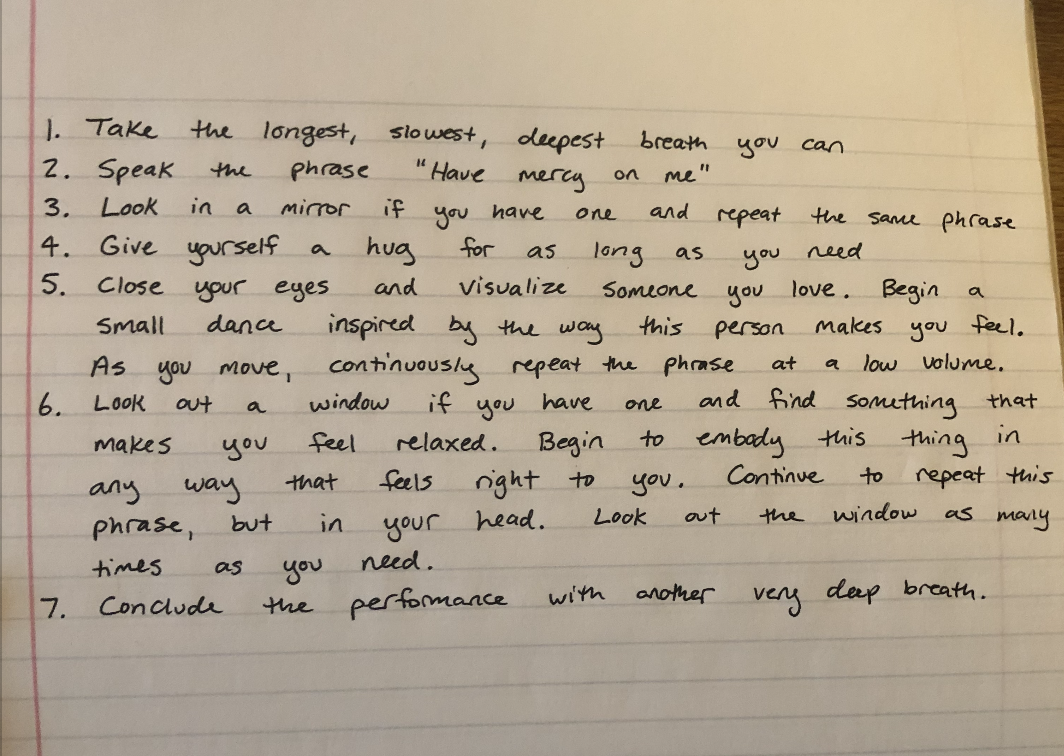 1. Take the longest, slowest, deepest breath you can
2. Speak the phrase "Have mercy on me"
3. Look in a mirror if you have one and repeat the same phrase
4. Give yourself a hug for as long as you need
5. Close your eyes and visualize someone you love. Begin a
small dance inspired by the way this person makes you feel.
As you move, continuously repeat the phrase at a low volume.
6. Look out a window if you have one and find something that
makes you feel relaxed. Begin to embody this thing in
any way that feels right to you. Continue to repeat this
phrase, but in your head. Look out the window as many
times as you need.
7. Conclude the performance with another very deep breath.